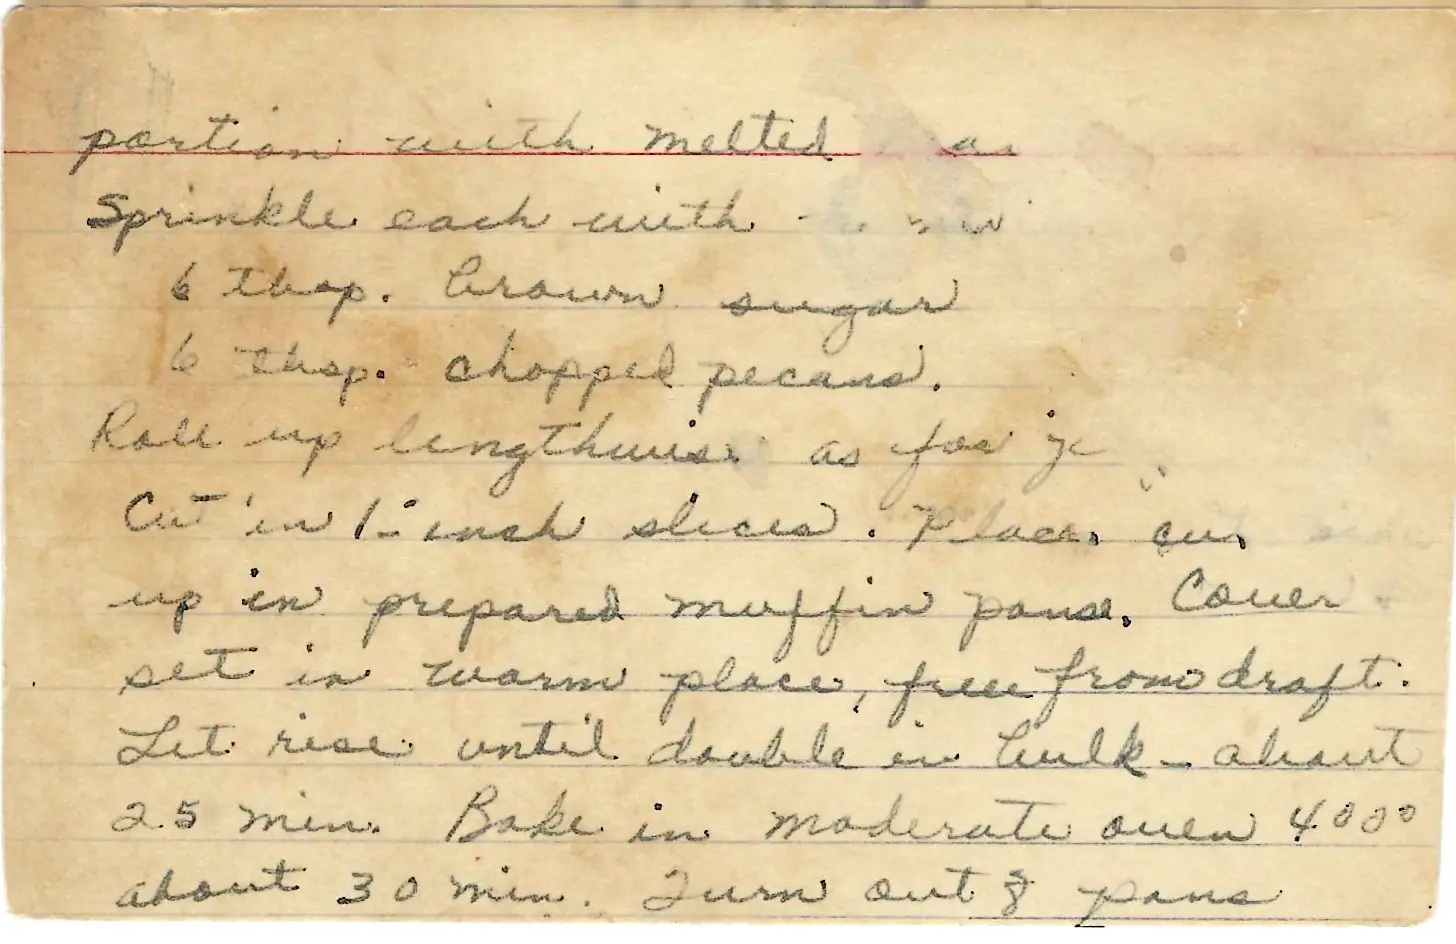 portion with melted
Sprinkle each with
6 tbsp. brown sugar
6 tbsp. chopped pecans.
Roll up lengthwise as for
Cut in 1-inch slices. Place cut side
up in prepared muffin pans. Cover +
set in warm place, free from draft.
Let rise until double in bulk - about
25 min. Bake in moderate oven 400°
about 30 min. Turn out of pans